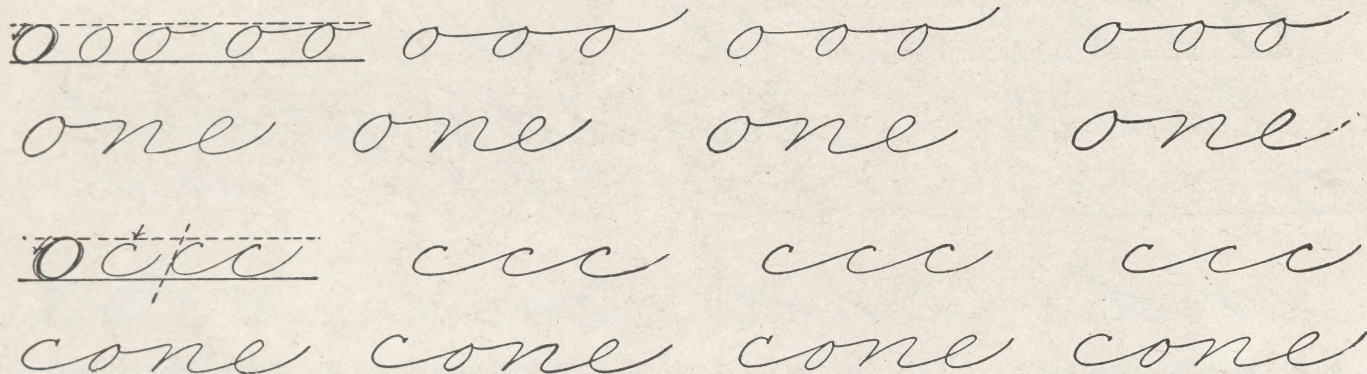 O o o o o o o o o o o o o o
one one one one
O c c c c c c c c c c c c
cone cone cone cone